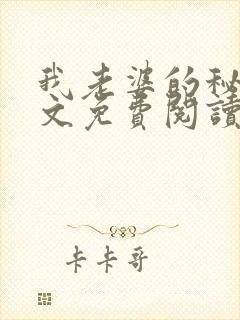 我老婆的秘
文免費閱讀
卡卡哥